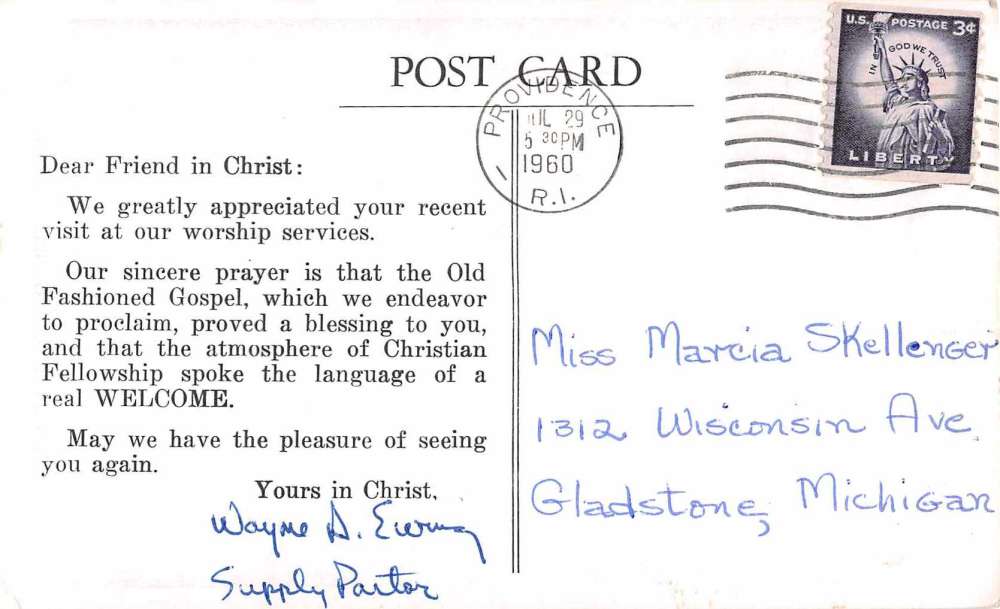 POST CARD
U.S. POSTAGE 3¢
IN GOD WE TRUST
LIBERTY
PROVIDENCE
JUL 29
5 30 PM
1960
R.I.
Dear Friend in Christ:
We greatly appreciated your recent
visit at our worship services.
Our sincere prayer is that the Old
Fashioned Gospel, which we endeavor
to proclaim, proved a blessing to you,
and that the atmosphere of Christian
Fellowship spoke the language of a
real WELCOME.
May we have the pleasure of seeing
you again.
Yours in Christ,
Wayne D. Ewing
Supply Pastor
Miss Marcia Skellenger
1312 Wisconsin Ave.
Gladstone, Michigan